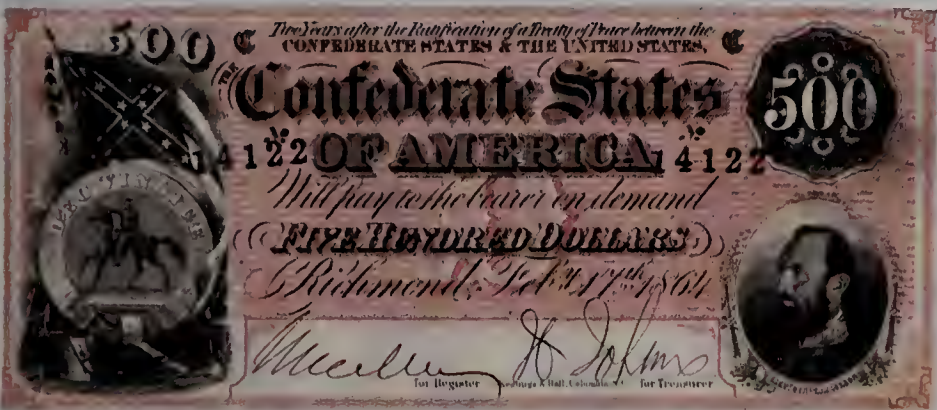 500
C Two Years after the Ratification of a Treaty of Peace between the C
CONFEDERATE STATES & THE UNITED STATES,
THE
Confederate States
OF AMERICA
500
No 14122
No 14122
Will pay to the bearer on demand
FIVE HUNDRED DOLLARS
Richmond, Feby. 17th. 1864
for Register
& Ball, Columbia, S.C.
for Treasurer